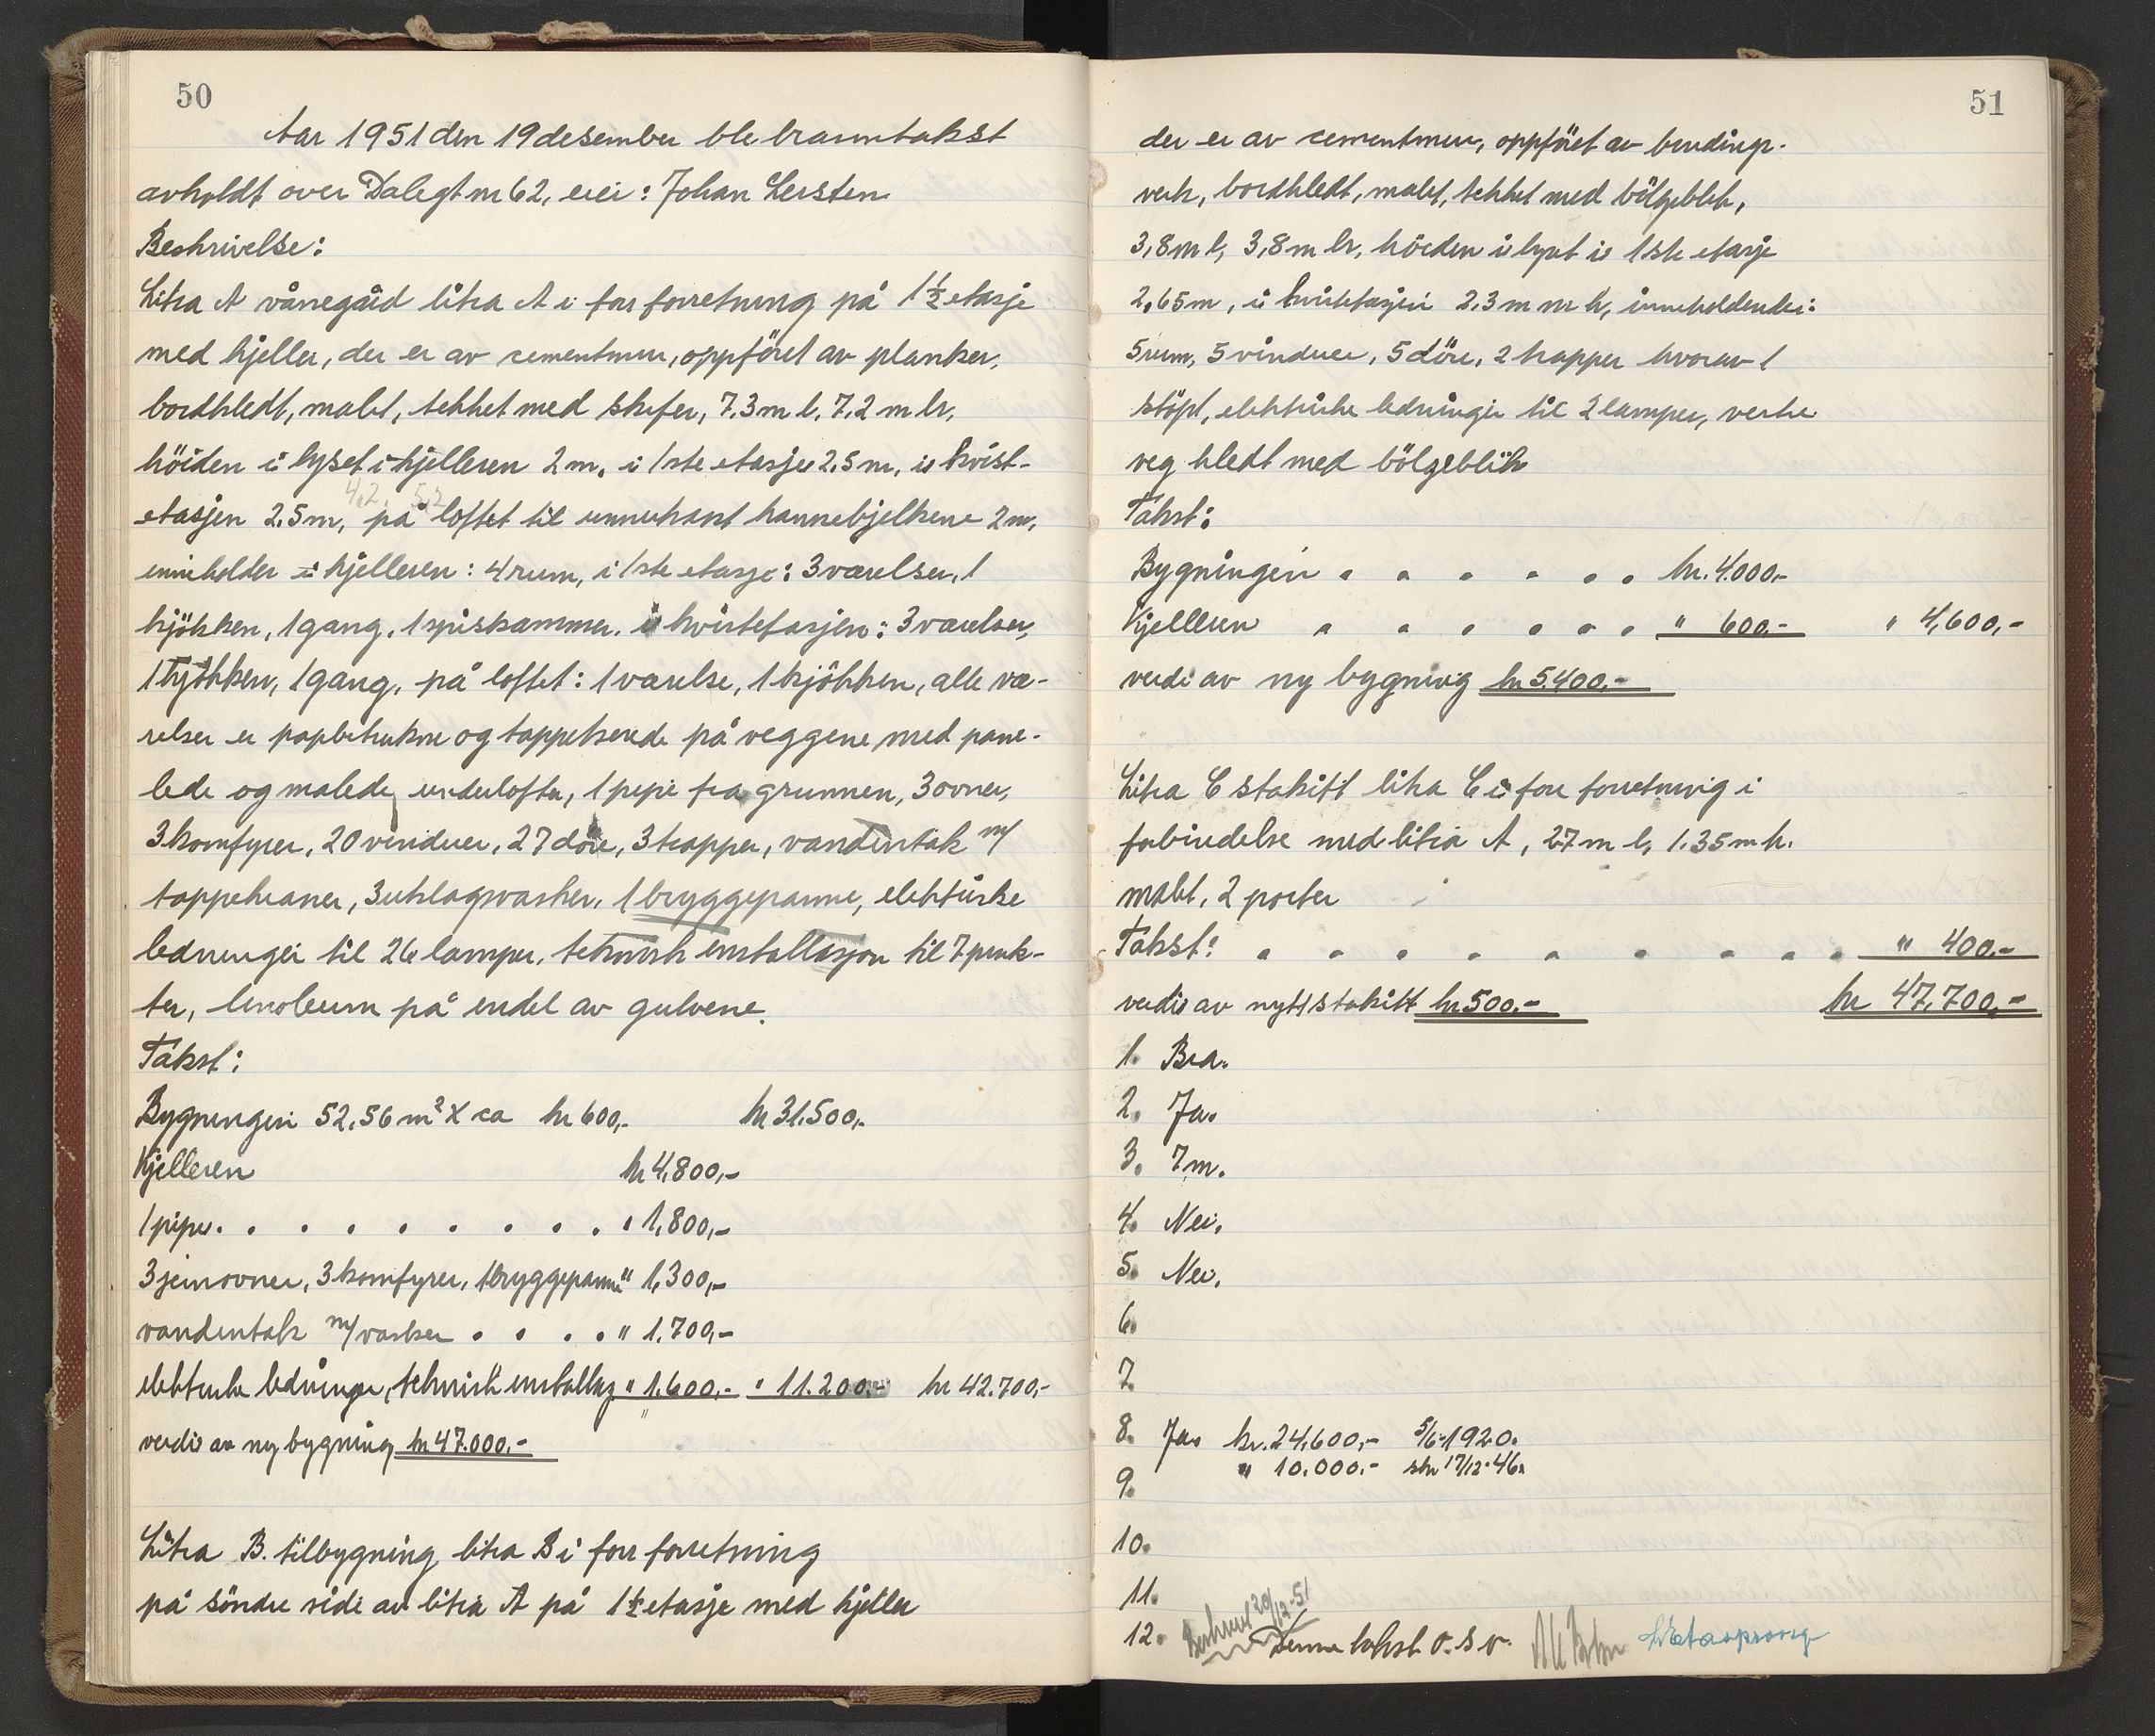 50
Aar 1951 den 19 desember ble branntakst
avholdt over Dalegt nr 62, eier: Johan Lersten
Beskrivelse:
Litra A vånegård litra A i forr forretning på 1½ etasje
med kjeller, der er av cementmur, oppföret av planker,
bordkledt, malet, tekket med skifer, 7.3 m l, 7.2 m br,
höiden i lyset i kjelleren 2 m, i 1ste etasje 2.5 m, i kvist-
4.2 5.2
etasjen 2.5 m, på loftet til unnerkant hannebjelkene 2 m,
inneholder i kjelleren: 4 rum, i 1ste etasje: 3 værelser, 1
kjökken, 1 gang, 1 spiskammer. i kvistetasjen: 3 værelser,
1 kjökken, 1 gang, på loftet: 1 værelse, 1 kjökken, alle væ-
relser er papbetrukne og tappetserede på veggene med pane-
lede og malede underlofter, 1 pipe fra grunnen, 3 ovner,
3 komfyrer, 20 vinduer, 27 döre, 3 trapper, vandintak m/
tappekraner, 3 utslagsvasker, 1 bryggepanne, elektriske
ledninger til 26 lamper, teknisk installasjon til 7 punk-
ter, linoleum på endel av gulvene.
Takst:
Bygningen 52,56 m² X ca kr 600,- kr 31.500,-
Kjelleren kr 4,800,-
1 pipe . . . . . . . . . " 1,800,-
3 jernovner, 3 komfyrer, 1 bryggepanne " 1,300,-
vandintak m/vasker . . . . " 1.700,-
elektriske ledninger, teknisk installasj " 1.600,- " 11.200,- kr 42.700,-
verdi av ny bygning kr 47.000,-
Litra B. tilbygning litra B i forr forretning
på söndre side av litra A på 1½ etasje med kjeller
51
der er av cementmur, oppföret av bindings-
verk, bordkledt, malet, tekket med bölgeblik,
3,8 m l, 3,8 m br, höiden i lyset i 1ste etasje
2,65 m, i kvistetasjen 2.3 m m h, inneholdende:
5 rum, 5 vinduer, 5 döre, 2 trapper hvorav 1
stöpt, elektriske ledninger til 2 lamper, vestre
veg kledt med bölgeblik
Takst:
Bygningen . . . . . . kr. 4.000,-
Kjelleren . . . . . . " 600,- " 4,600,-
verdi av ny bygning kr 5.400,-
Litra C stakitt litra C i forr forretning i
forbindelse med litra A, 27 m l, 1.35 m h.
malt, 2 porter
Takst: . . . . . . . . . " 400,-
verdi av nytt stakitt kr 500,- kr 47,700,-
1. Bra.
2. Ja.
3. 7 m.
4. Nei.
5. Nei.
6.
7.
8. Ja. kr. 24,600,- 5/6-1920.
" 10.000,- skr 17/12-46.
9.
10.
11.
12. 20/12-51 Denne takst o. s. v.